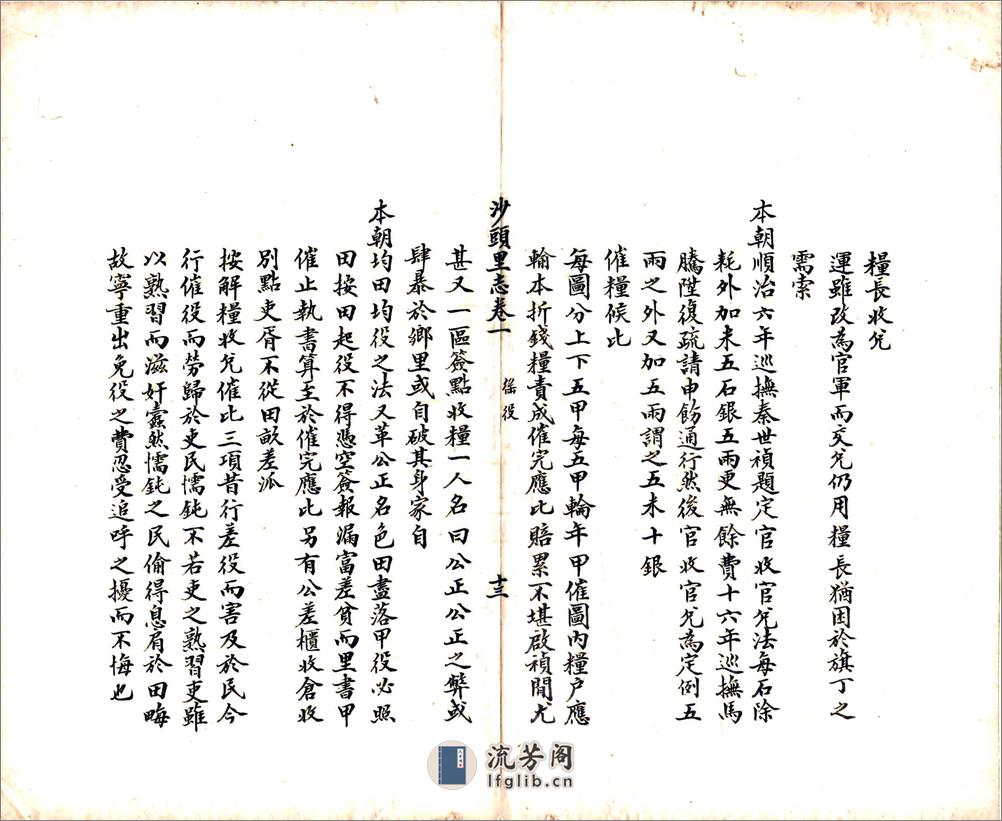 糧長收兌
運雖改為官軍而交兌仍用糧長猶困於旗丁之
需索
本朝順治六年巡撫秦世禎題定官收官兌法每石除
耗外加米五石銀五兩更無餘費十六年巡撫馬
騰陞復疏請申飭通行然後官收官兌為定例五
兩之外又加五兩謂之五米十銀
催糧候比
每圖分上下五甲每五甲輪年甲催圖內糧户應
輸本折錢糧責成催完應比賠累不堪啟禎間尤
沙頭里志卷一 徭役 十三
甚又一區簽點收糧一人名曰公正公正之弊或
肆暴於鄉里或自破其身家自
本朝均田均役之法又革公正名色田盡落甲役必照
田按田起役不得憑空簽報漏富差貧而里書甲
催止執書算至於催完應比另有公差櫃收倉收
別點吏胥不從田畝差派
按解糧收兌催比三項昔行差役而害及於民今
行催役而勞歸於吏民懦鈍不若吏之熟習吏雖
以熟習而滋奸蠹然懦鈍之民偷得息肩於田畮
故寧重出免役之費忍受追呼之擾而不悔也
流芳阁
lfglib.cn